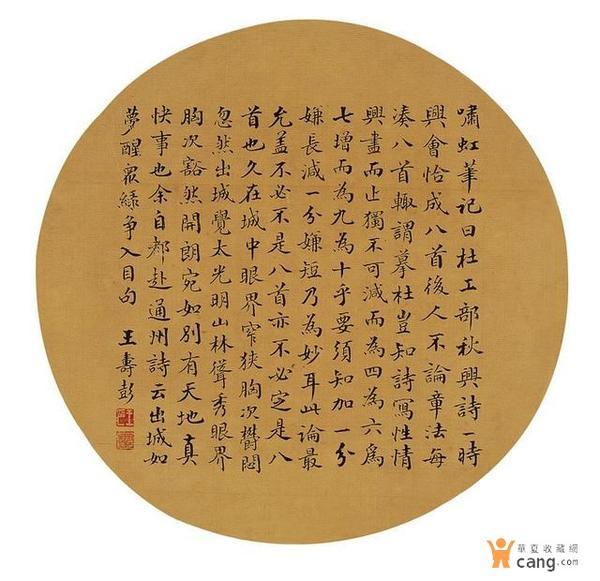 嘯虹筆記曰杜工部秋興詩一時
興會恰成八首後人不論章法每
湊八首輒謂摹杜豈知詩寫性情
興盡而止獨不可減而為四為六為
七增而為九為十乎要須知加一分
嫌長減一分嫌短乃為妙耳此論最
允盖不必不是八首亦不必定是八
首也久在城中眼界窄狹胸次欝悶
忽然出城覺太光明山林聳秀眼界
胸次豁然開朗宛如別有天地真
快事也余自都赴通州詩云出城如
夢醒眾綠爭入目句 王壽彭
華夏收藏網
cang.com